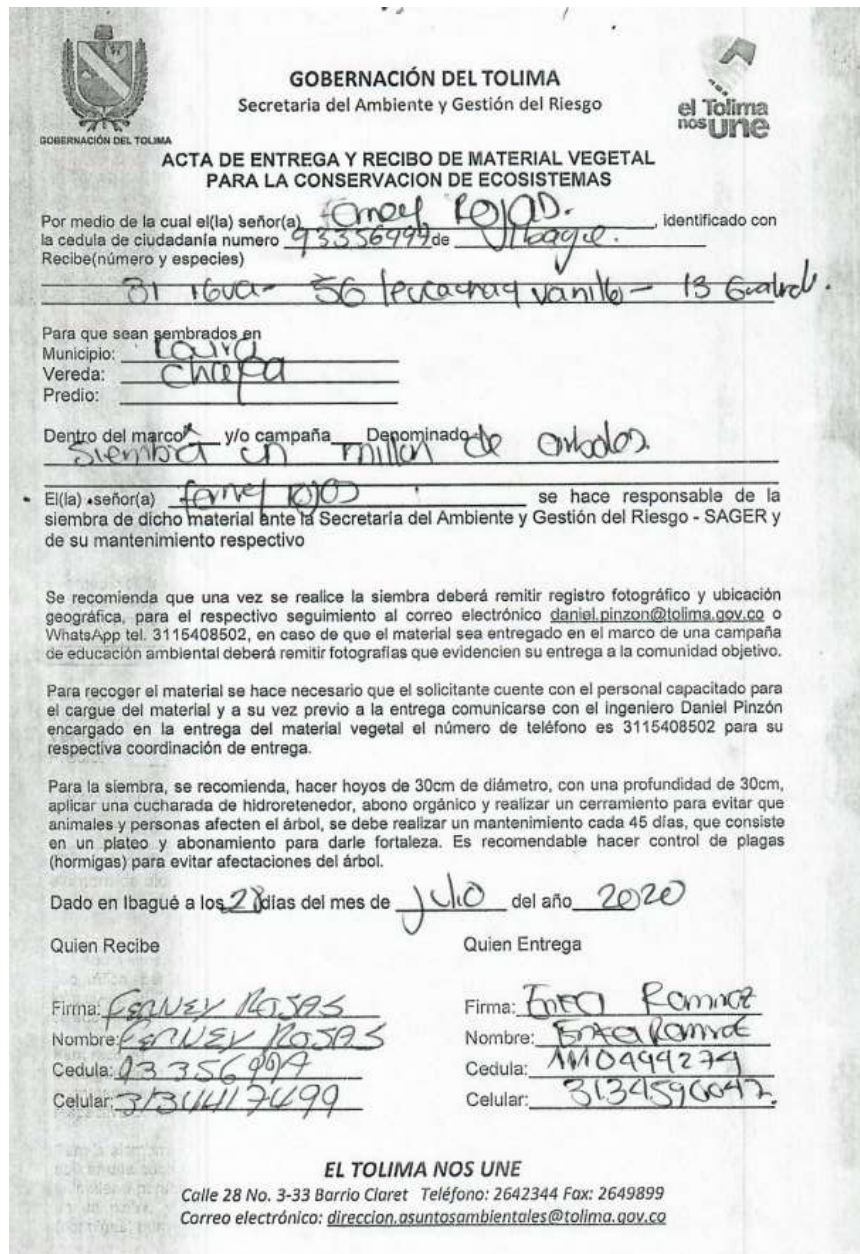 GOBERNACIÓN DEL TOLIMA
Secretaria del Ambiente y Gestión del Riesgo
GOBERNACIÓN DEL TOLIMA
el Tolima
nos une
ACTA DE ENTREGA Y RECIBO DE MATERIAL VEGETAL
PARA LA CONSERVACION DE ECOSISTEMAS
Por medio de la cual el(la) señor(a) Ferney Rojas. , identificado con
la cedula de ciudadanía numero 93356999 de Ibague.
Recibe(número y especies)
31 - 56 - 13
Para que sean sembrados en
Municipio:
Vereda:
Predio:
Dentro del marco x y/o campaña Denominado de arboles
Siembra un millon
El(la) señor(a) ferney rojas se hace responsable de la
siembra de dicho material ante la Secretaria del Ambiente y Gestión del Riesgo - SAGER y
de su mantenimiento respectivo
Se recomienda que una vez se realice la siembra deberá remitir registro fotográfico y ubicación
geográfica, para el respectivo seguimiento al correo electrónico daniel.pinzon@tolima.gov.co o
WhatsApp tel. 3115408502, en caso de que el material sea entregado en el marco de una campaña
de educación ambiental deberá remitir fotografías que evidencien su entrega a la comunidad objetivo.
Para recoger el material se hace necesario que el solicitante cuente con el personal capacitado para
el cargue del material y a su vez previo a la entrega comunicarse con el ingeniero Daniel Pinzón
encargado en la entrega del material vegetal el número de teléfono es 3115408502 para su
respectiva coordinación de entrega.
Para la siembra, se recomienda, hacer hoyos de 30cm de diámetro, con una profundidad de 30cm,
aplicar una cucharada de hidroretenedor, abono orgánico y realizar un cerramiento para evitar que
animales y personas afecten el árbol, se debe realizar un mantenimiento cada 45 días, que consiste
en un plateo y abonamiento para darle fortaleza. Es recomendable hacer control de plagas
(hormigas) para evitar afectaciones del árbol.
Dado en Ibagué a los 28 días del mes de Julio del año 2020
Quien Recibe Quien Entrega
Firma: FERNEY ROJAS Firma:
Nombre: FERNEY ROJAS Nombre:
Cedula: 93356999 Cedula: 1110499274
Celular: Celular:
EL TOLIMA NOS UNE
Calle 28 No. 3-33 Barrio Claret Teléfono: 2642344 Fax: 2649899
Correo electrónico: direccion.asuntosambientales@tolima.gov.co